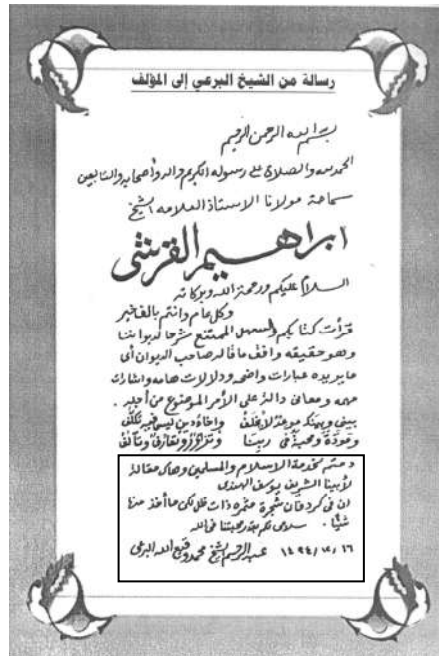 رسالة من الشيخ البرعي إلى المؤلف
بسم الله الرحمن الرحيم
الحمد لله والصلاة على رسوله الكريم وآله وأصحابه والتابعين
سماحة مولانا الاستاذ العلامه الشيخ
ابراهيم القرشى
السلام عليكم ورحمة الله وبركاته
وكل عام وانتم بالف خير
قرأت كتابكم السهل الممتنع شرحا لديواننا
وهو حقيقه وافق ما قاله صاحب الديوان أى
ما يريده عبارات واضحه ودلالات هامه واشارات
مهمه ومعانى داله على الأمر الموضوع من أجله .
بينى وبينك موعد لا يخلف واخاء دين ليس فيه تكلف
ومودة ومحبة فى ربنا وتزاور وتعارف وتآلف
دمتم لخدمة الاسلام والمسلمين وهاك مقالة
لأبينا الشريف يوسف الهندى
ان فى كردفان شجرة مثمره ذات ظل لكن ما أخذ منها
شيئا . سلامى لكم بقدر محبتنا فى الله
عبد الرحيم الشيخ محمد وقيع الله البرعى